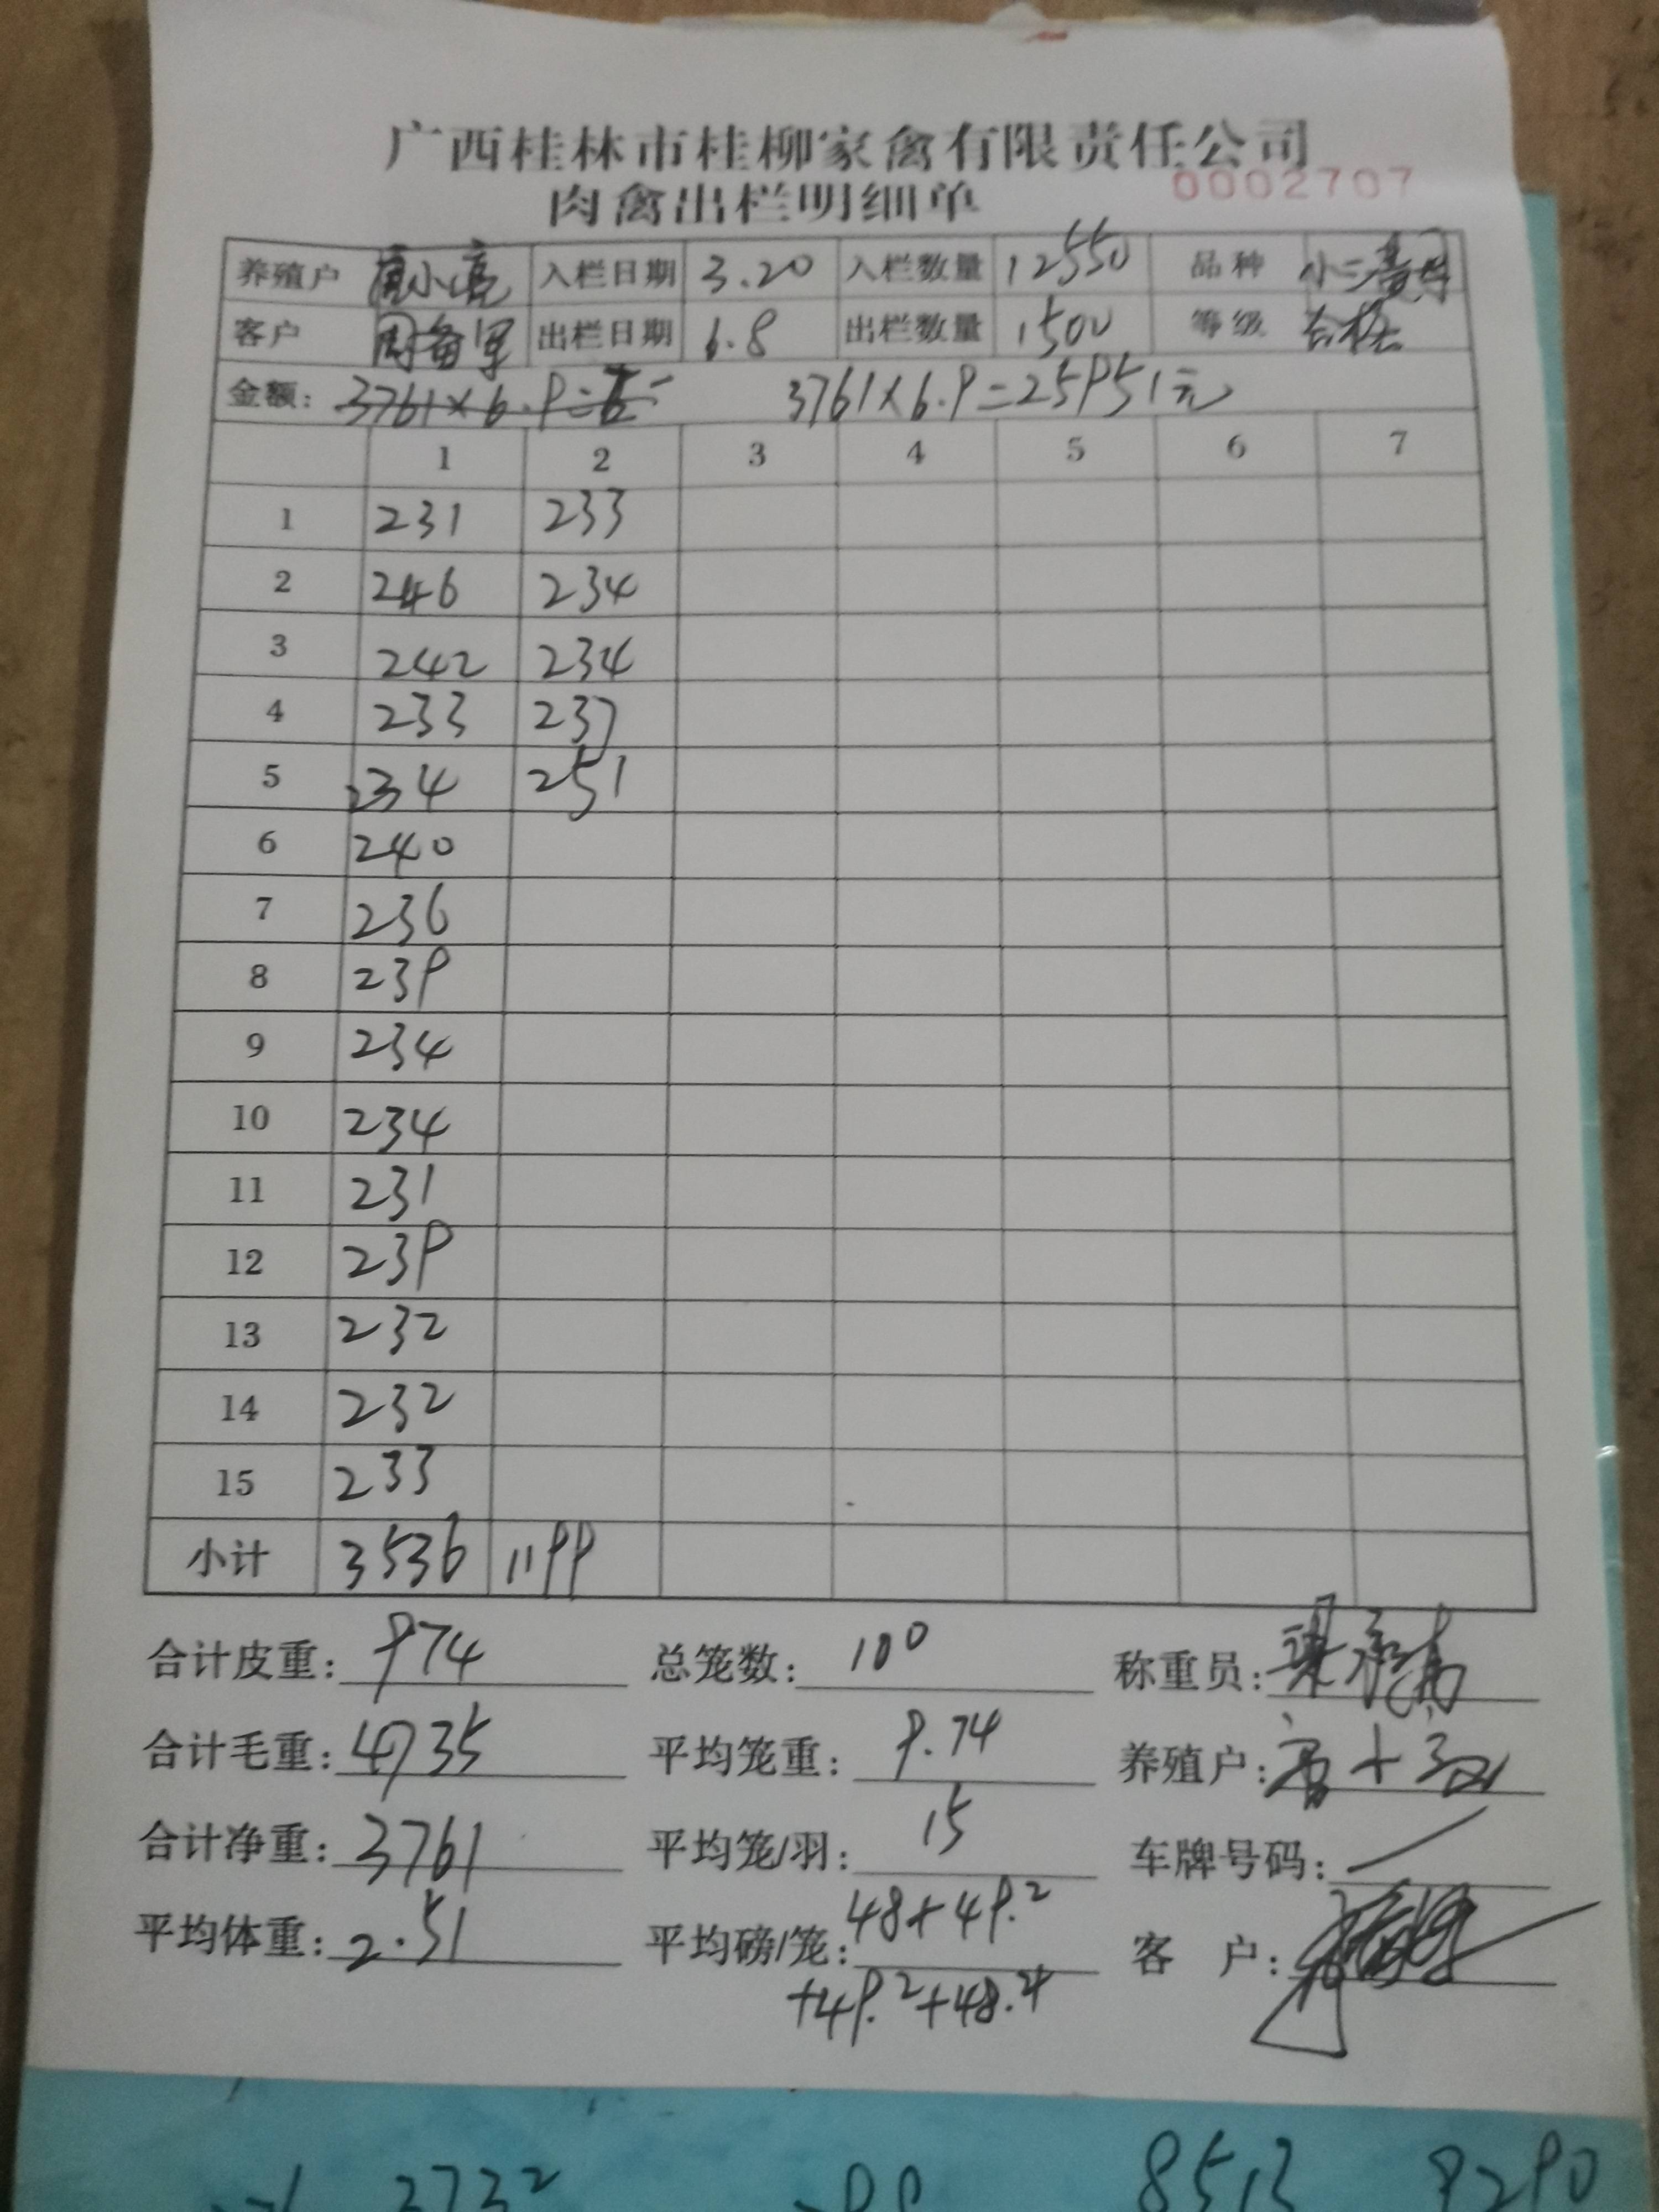 广西桂林市桂柳家禽有限责任公司
肉禽出栏明细单 0002707
养殖户 唐小亮 入栏日期 3.20 入栏数量 12550 品种 小二
客户 周备军 出栏日期 6.8 出栏数量 1500 等级 合格
金额: 3761×6.9= 3761×6.9=25951元
1 2 3 4 5 6 7
1 231 233
2 246 234
3 242 234
4 233 237
5 234 251
6 240
7 236
8 239
9 234
10 234
11 231
12 239
13 232
14 232
15 233
小计 3536 1199
合计皮重: 974 总笼数: 100 称重员:
合计毛重: 4735 平均笼重: 9.74 养殖户:
合计净重: 3761 平均笼/羽: 15 车牌号码: /
平均体重: 2.51 平均磅/笼: 48+49.2 客 户:
+49.2+48.4
2732 8513 9290